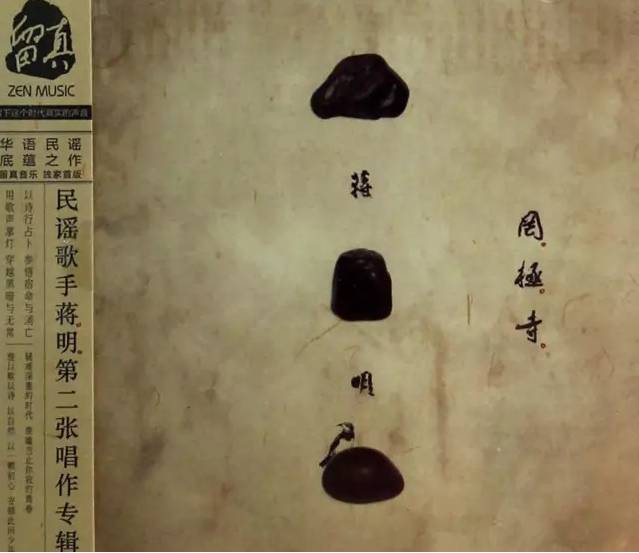 留真
ZEN MUSIC
留下这个时代真实的声音
华语民谣
底蕴之作
留真音乐 独家首版
民谣歌手蒋明第二张唱作专辑
以诗行占卜 参悟宿命与消亡
用歌声掌灯 穿越黑暗与无常
蒋
明
罔極寺